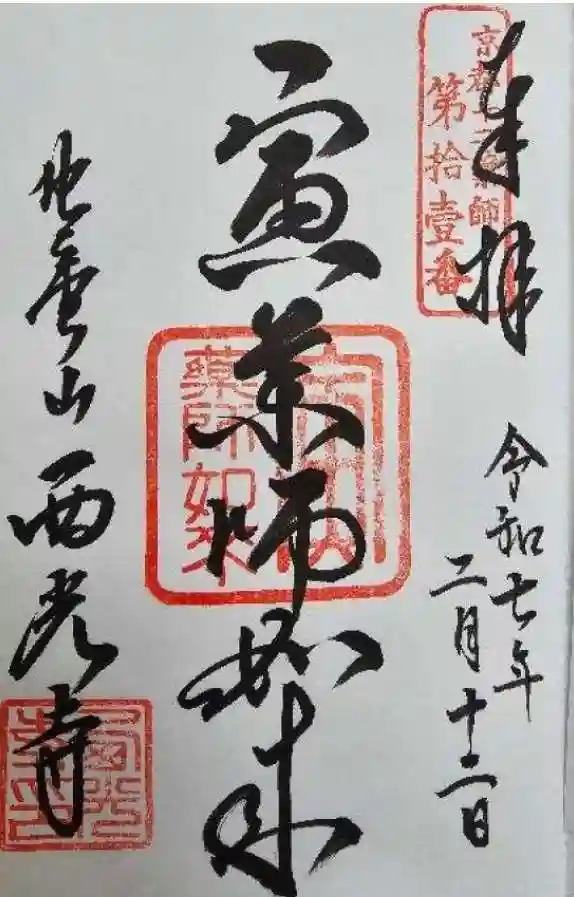 奉拝
京都十二薬師
第拾壹番
令和七年
二月十二日
寅薬師如来
藥師如来
北亀山 西光寺